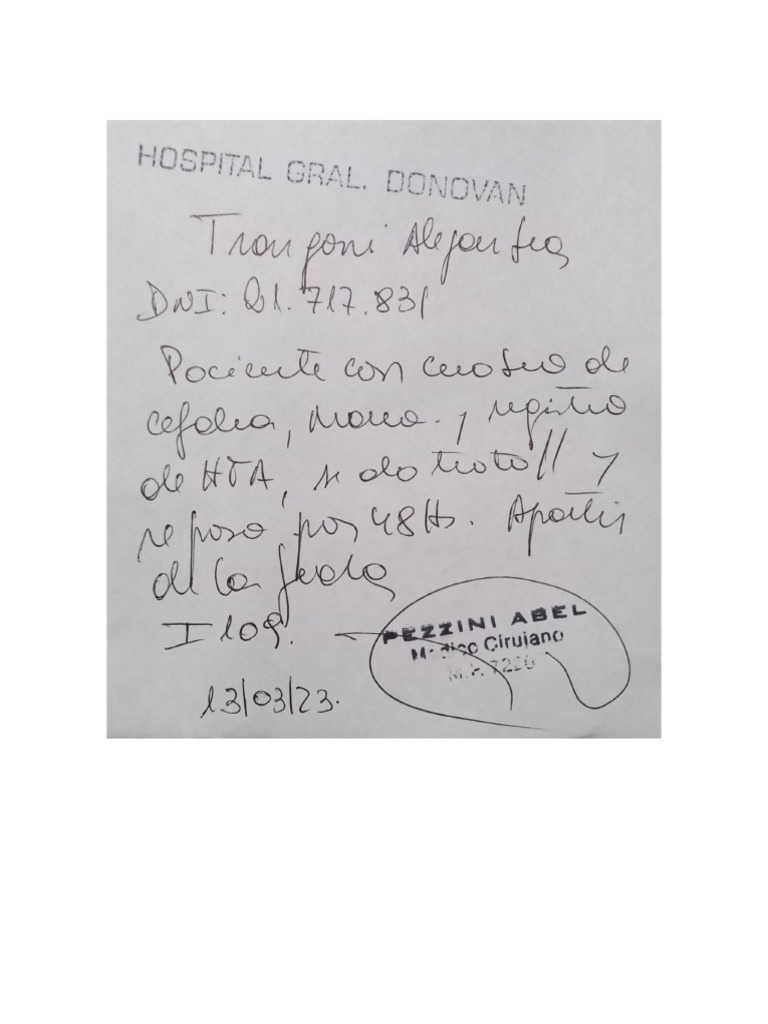 HOSPITAL GRAL. DONOVAN
Trangoni Alejandra
DNI: 21.717.831
Paciente con cuadro de
cefalea, mareo y registro
de HTA, se da tratto// y
reposo por 48Hs. Apartir
de la fecha
I 109.
PEZZINI ABEL
Médico Cirujano
M.P. 7220
13/03/23.